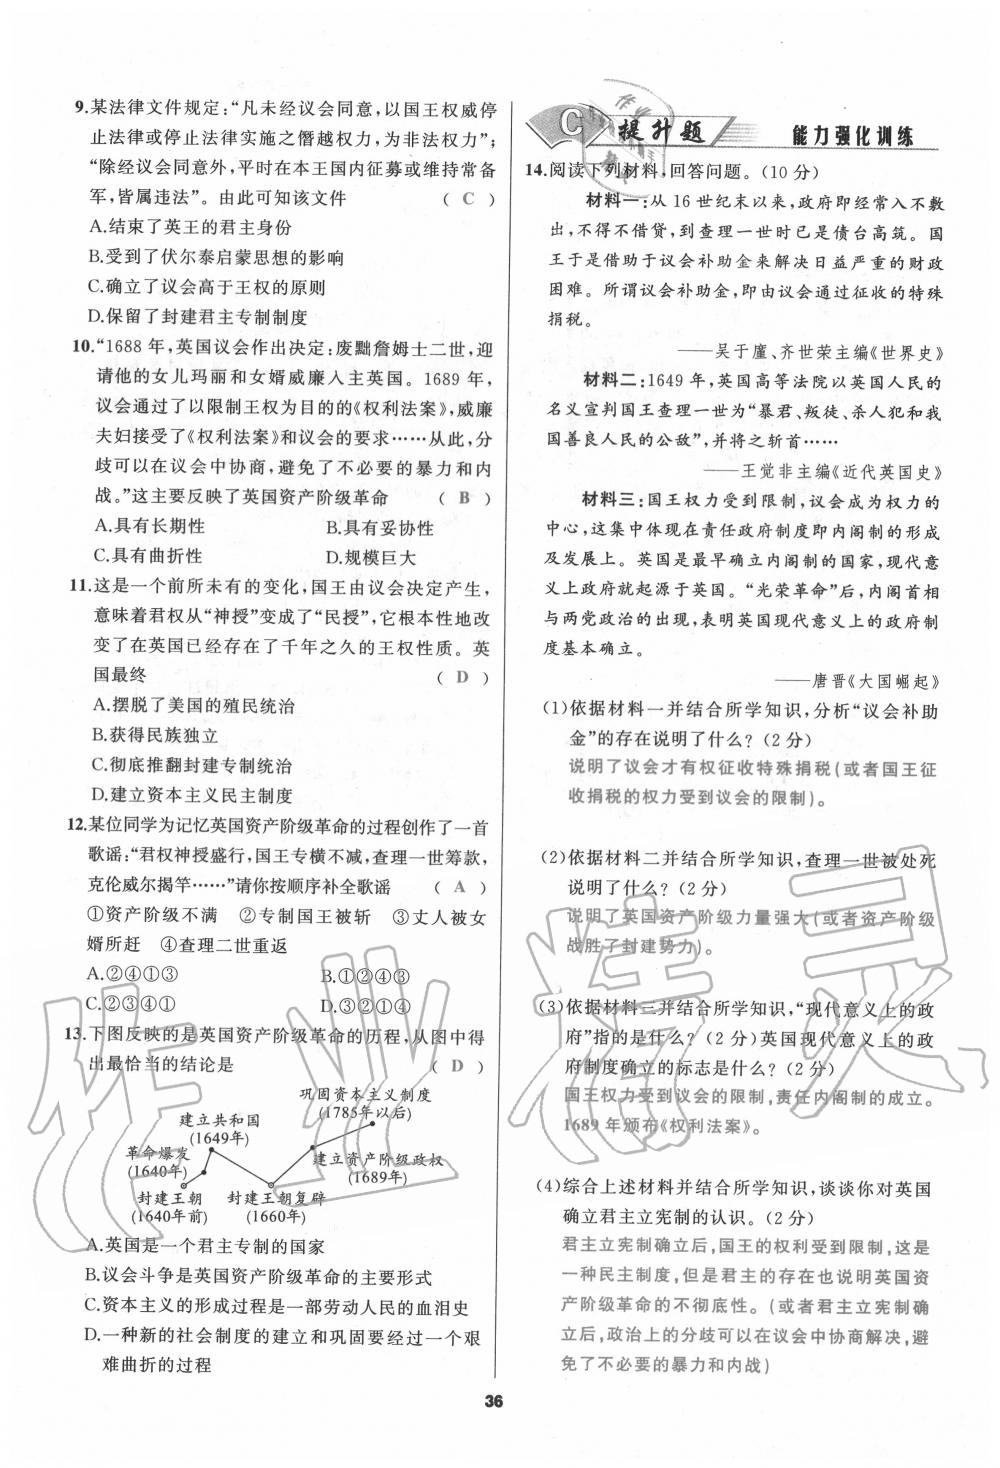 9.某法律文件规定:“凡未经议会同意,以国王权威停
止法律或停止法律实施之僭越权力,为非法权力”;
“除经议会同意外,平时在本王国内征募或维持常备
军,皆属违法”。由此可知该文件 ( C )
A.结束了英王的君主身份
B.受到了伏尔泰启蒙思想的影响
C.确立了议会高于王权的原则
D.保留了封建君主专制制度
10.“1688年,英国议会作出决定:废黜詹姆士二世,迎
请他的女儿玛丽和女婿威廉入主英国。1689年,
议会通过了以限制王权为目的的《权利法案》,威廉
夫妇接受了《权利法案》和议会的要求……从此,分
歧可以在议会中协商,避免了不必要的暴力和内
战。”这主要反映了英国资产阶级革命 ( B )
A.具有长期性 B.具有妥协性
C.具有曲折性 D.规模巨大
11.这是一个前所未有的变化,国王由议会决定产生,
意味着君权从“神授”变成了“民授”,它根本性地改
变了在英国已经存在了千年之久的王权性质。英
国最终 ( D )
A.摆脱了美国的殖民统治
B.获得民族独立
C.彻底推翻封建专制统治
D.建立资本主义民主制度
12.某位同学为记忆英国资产阶级革命的过程创作了一首
歌谣:“君权神授盛行,国王专横不减,查理一世筹款,
克伦威尔揭竿……”请你按顺序补全歌谣 ( A )
①资产阶级不满 ②专制国王被斩 ③丈人被女
婿所赶 ④查理二世重返
A.②④①③ B.①②④③
C.②③④① D.③②①④
13.下图反映的是英国资产阶级革命的历程,从图中得
出最恰当的结论是 ( D )
巩固资本主义制度
(1785年以后)
建立共和国
(1649年)
革命爆发
(1640年)
建立资产阶级政权
(1689年)
封建王朝
(1640年前)
封建王朝复辟
(1660年)
A.英国是一个君主专制的国家
B.议会斗争是英国资产阶级革命的主要形式
C.资本主义的形成过程是一部劳动人民的血泪史
D.一种新的社会制度的建立和巩固要经过一个艰
难曲折的过程
C 提升题 能力强化训练
14.阅读下列材料,回答问题。(10分)
材料一:从16世纪末以来,政府即经常入不敷
出,不得不借贷,到查理一世时已是债台高筑。国
王于是借助于议会补助金来解决日益严重的财政
困难。所谓议会补助金,即由议会通过征收的特殊
捐税。
——吴于廑、齐世荣主编《世界史》
材料二:1649年,英国高等法院以英国人民的
名义宣判国王查理一世为“暴君、叛徒、杀人犯和我
国善良人民的公敌”,并将之斩首……
——王觉非主编《近代英国史》
材料三:国王权力受到限制,议会成为权力的
中心,这集中体现在责任政府制度即内阁制的形成
及发展上。英国是最早确立内阁制的国家,现代意
义上政府就起源于英国。“光荣革命”后,内阁首相
与两党政治的出现,表明英国现代意义上的政府制
度基本确立。
——唐晋《大国崛起》
(1)依据材料一并结合所学知识,分析“议会补助
金”的存在说明了什么?(2分)
说明了议会才有权征收特殊捐税(或者国王征
收捐税的权力受到议会的限制)。
(2)依据材料二并结合所学知识,查理一世被处死
说明了什么?(2分)
说明了英国资产阶级力量强大(或者资产阶级
战胜了封建势力)。
(3)依据材料三并结合所学知识,“现代意义上的政
府”指的是什么?(2分)英国现代意义上的政
府制度确立的标志是什么?(2分)
国王权力受到议会的限制,责任内阁制的成立。
1689年颁布《权利法案》。
(4)综合上述材料并结合所学知识,谈谈你对英国
确立君主立宪制的认识。(2分)
君主立宪制确立后,国王的权利受到限制,这是
一种民主制度,但是君主的存在也说明英国资
产阶级革命的不彻底性。(或者君主立宪制确
立后,政治上的分歧可以在议会中协商解决,避
免了不必要的暴力和内战)
36
作业精灵